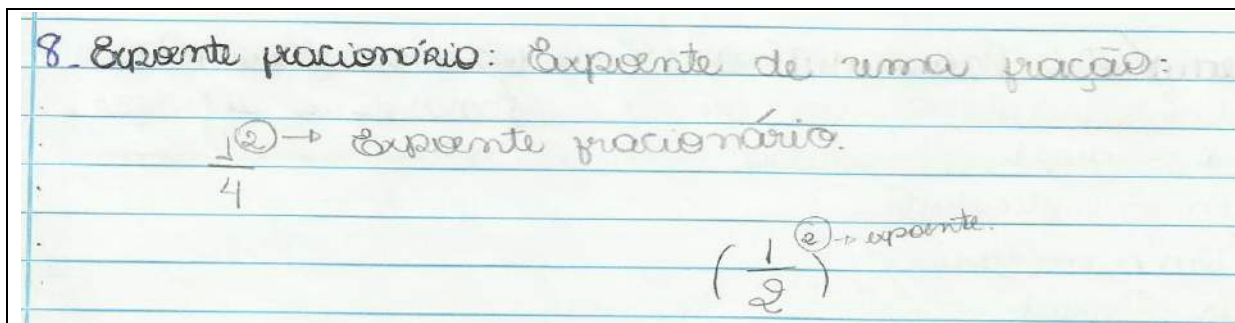 8_ Expoente fracionário: Expoente de uma fração:
1② → Expoente fracionário.
4
(1/2)② → expoente.